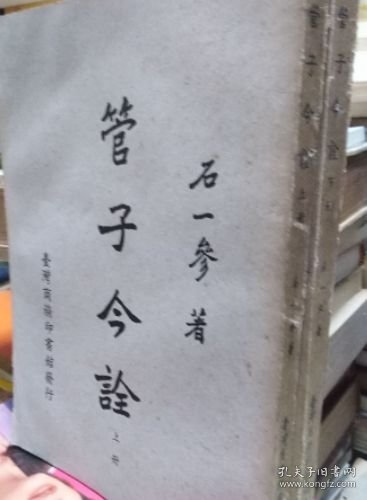 石一參著
管子今詮
上册
臺灣商務印書館發行
管子今詮 上册
管子今詮 下册
孔夫子旧书网
www.kongfz.com